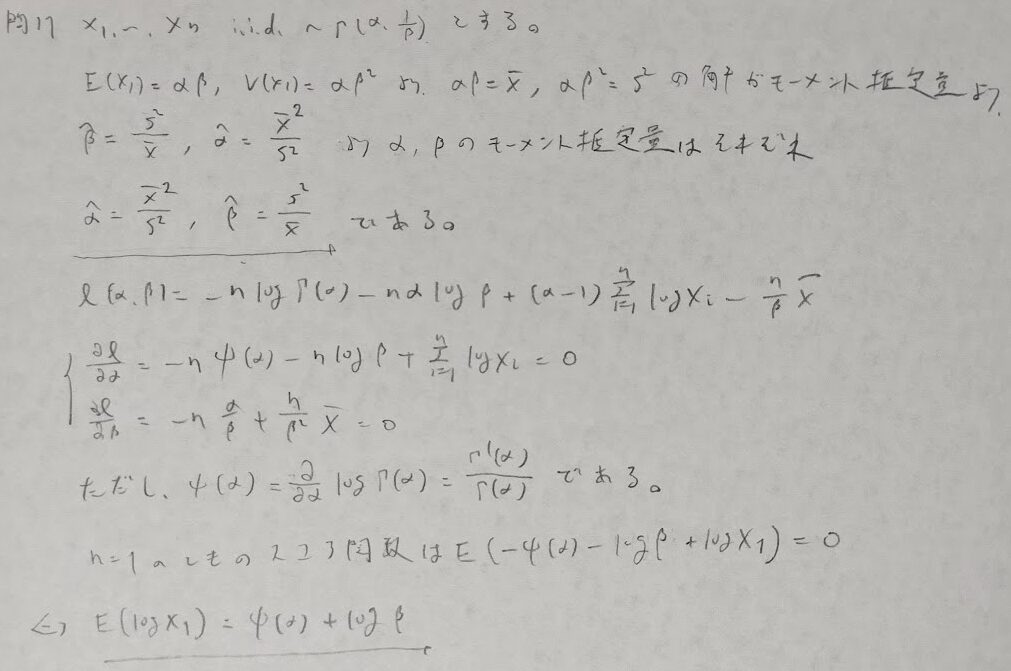 問17 X₁, ~, Xn i.i.d. ~ Γ(α, 1/β) とする。
E(X₁) = αβ, V(X₁) = αβ² より αβ = x̄, αβ² = s² の解がモーメント推定量より,
β̂ = s²/x̄, α̂ = x̄²/s² より α, β のモーメント推定量はそれぞれ
α̂ = x̄²/s², β̂ = s²/x̄ である。
ℓ(α, β) = -n log Γ(α) - nα log β + (α-1) Σ_{i=1}^{n} log Xi - n/β x̄
∂ℓ/∂α = -n ψ(α) - n log β + Σ_{i=1}^{n} log Xi = 0
∂ℓ/∂β = -n α/β + n/β² x̄ = 0
ただし、ψ(α) = ∂/∂α log Γ(α) = Γ'(α)/Γ(α) である。
n=1 のときのスコア関数は E(-ψ(α) - log β + log X₁) = 0
⇔ E(log X₁) = ψ(α) + log β